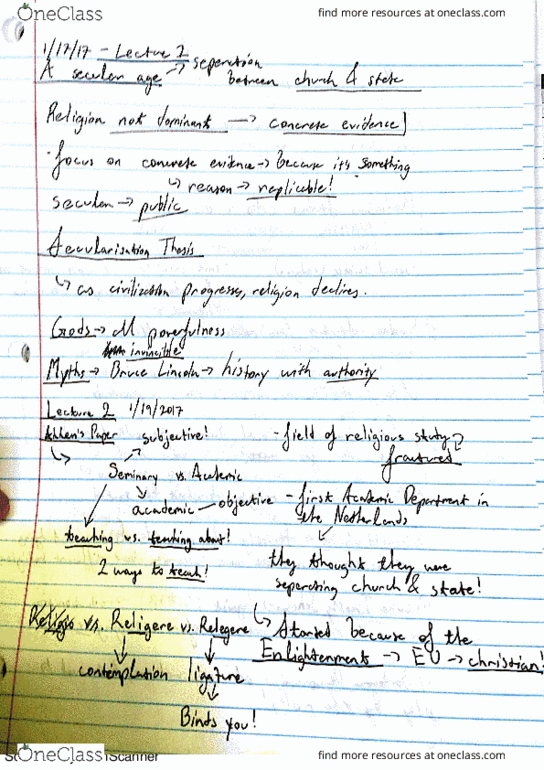 OneClass
find more resources at oneclass.com
1/17/17 - Lecture 2
A secular age -> seperation
between church & state
Religion not dominant -> concrete evidence
· focus on concrete evidence -> because it's something
↳ reason -> replicable!
secular -> public
Secularisation Thesis
↳ as civilization progresses, religion declines.
Gods -> all powerfulness
invincible
Myths -> Bruce Lincoln -> history with authority
Lecture 2 1/19/2017
Paper subjective!
- field of religious study
fractured
Seminary vs. Academic
academic - objective
- first Academic Department in
the Netherlands
teaching vs. teaching about!
2 ways to teach!
they thought they were
seperating church & state!
Religio vs. Religere vs. Relegere
↳ Started because of the
Enlightenment -> EU -> christian!
contemplation ligature
Binds you!
OneClass
Scanner
find more resources at oneclass.com